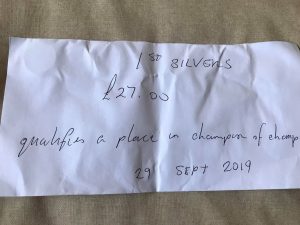 1ST SILVERS
£27.00
qualifies a place in champion of champ
29 SEPT 2019